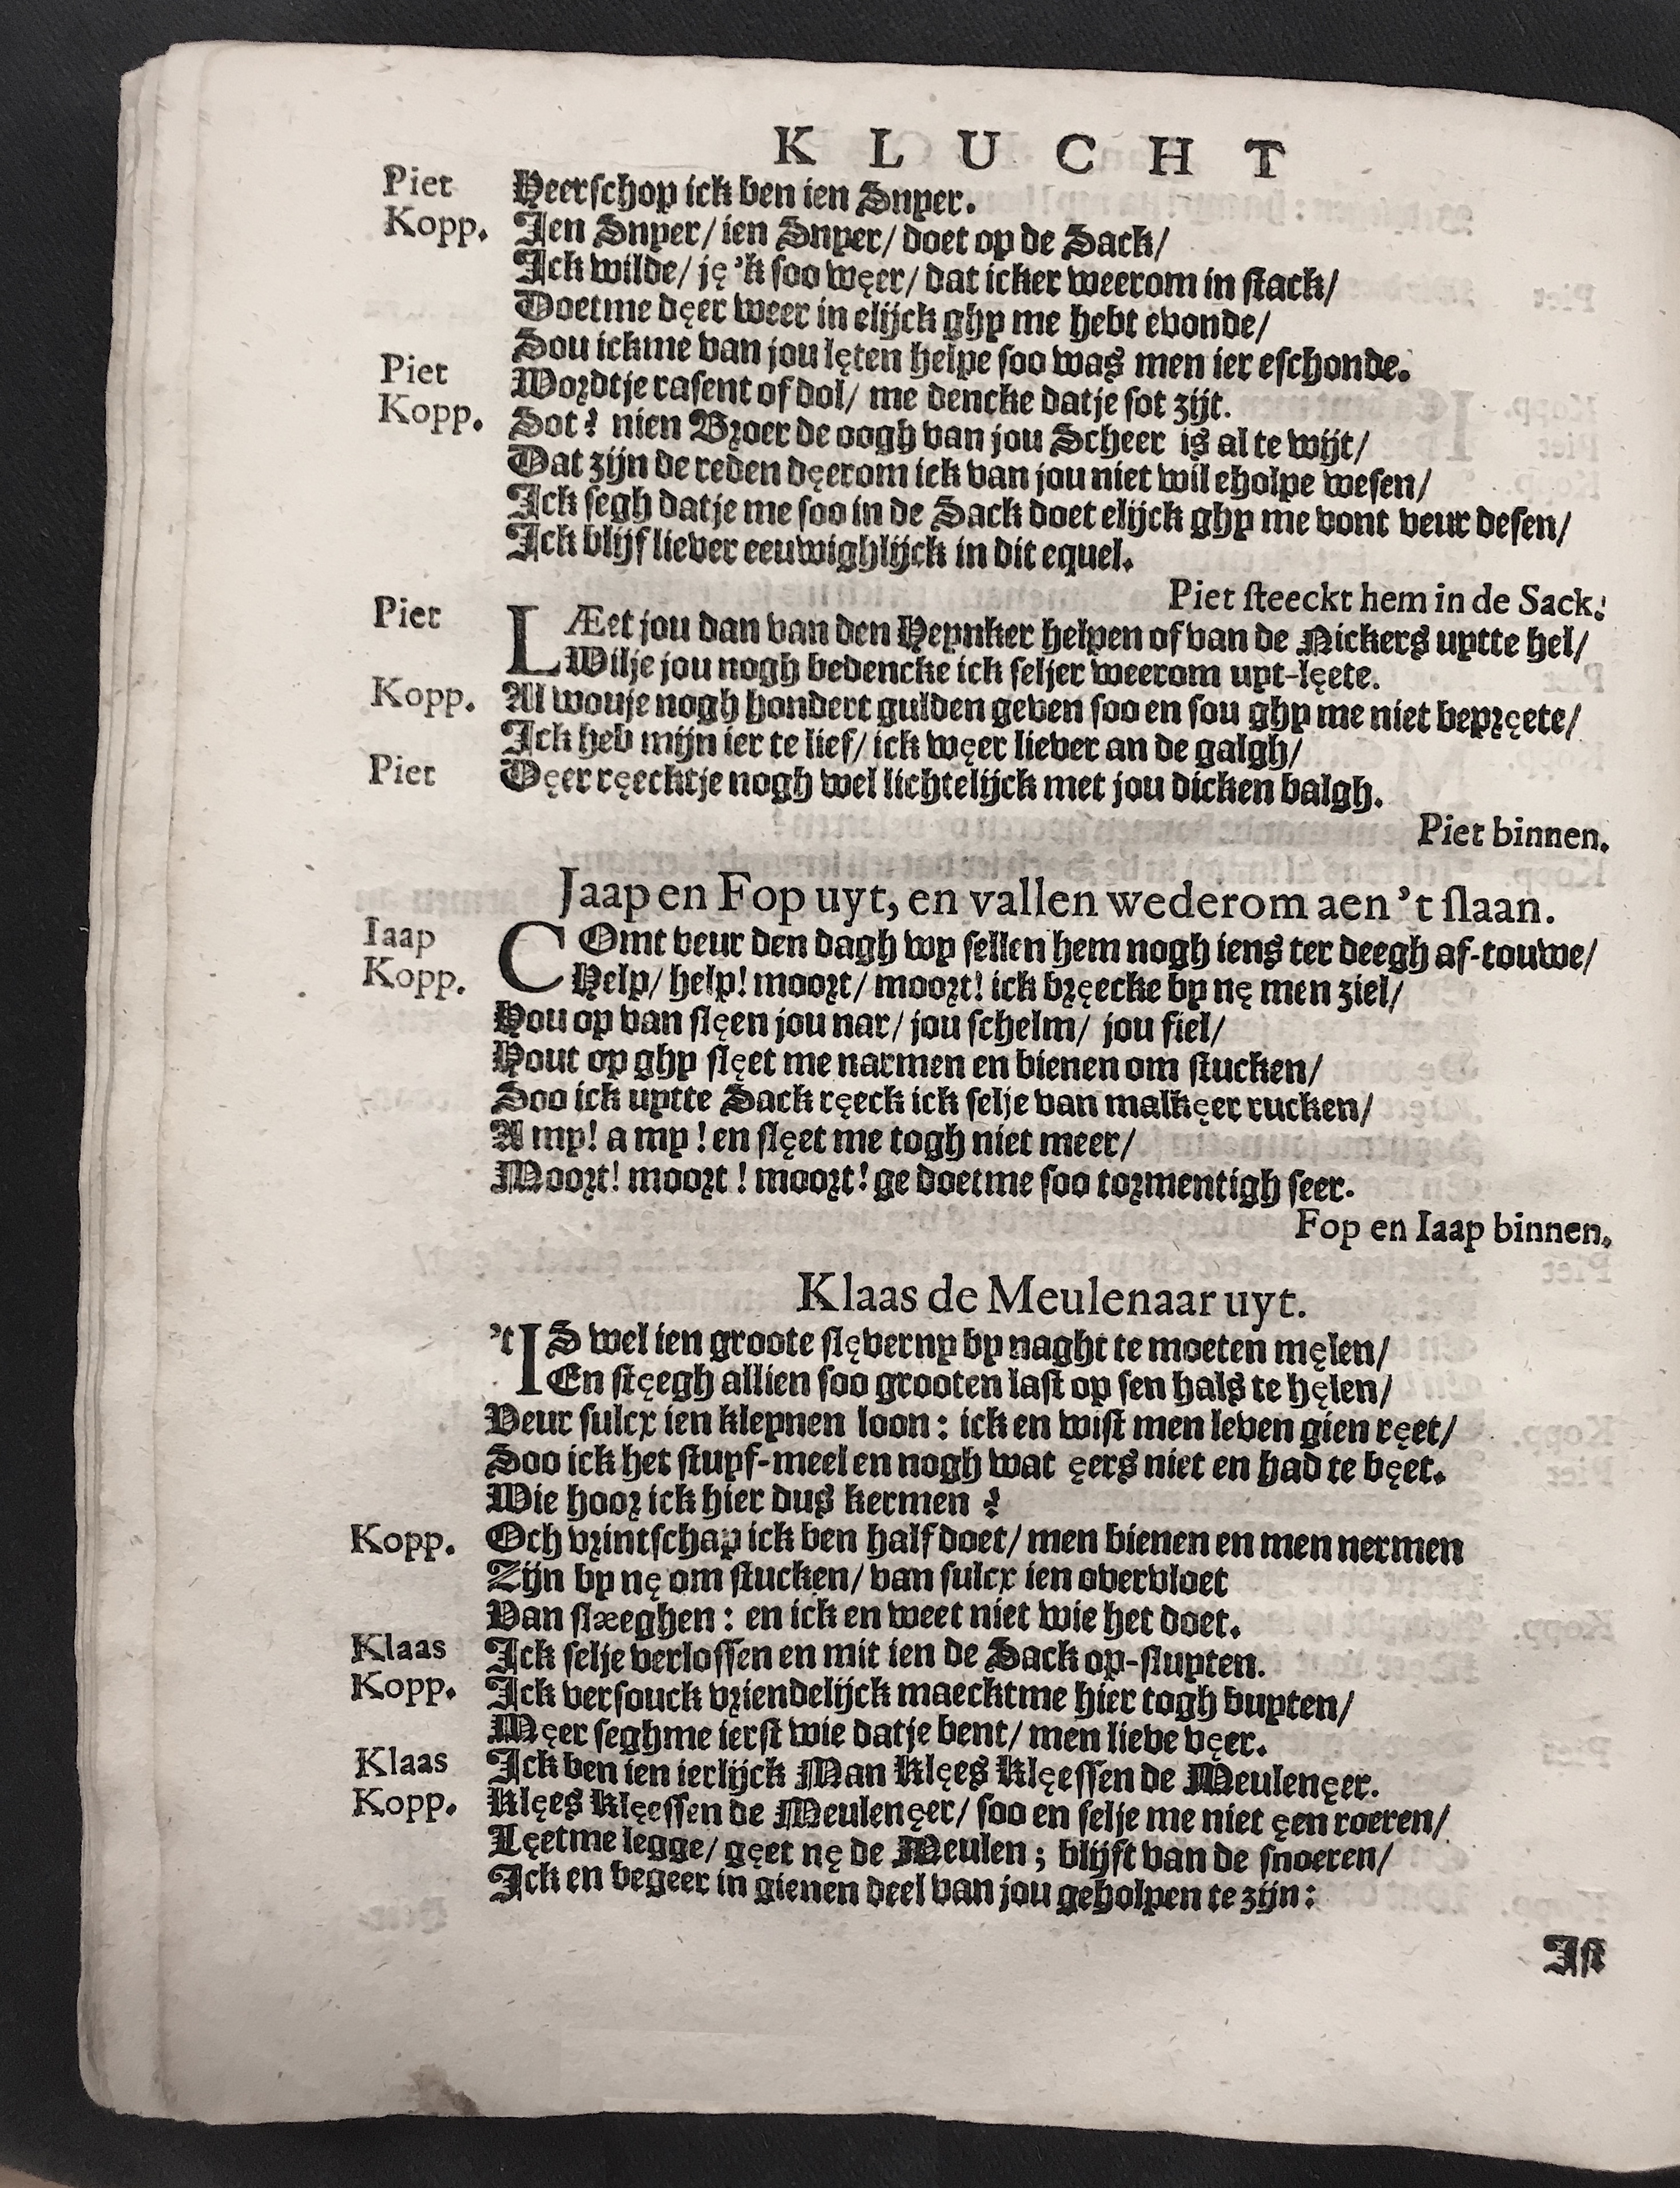 KLUCHT
Piet Heerschop ick ben ien Snyer.
Kopp. Ien Snyer/ ien Snyer/ doet op de Sack/
Ick wilde/ ję 'k soo węer/ dat icker weerom in stack/
Doetme dęer weer in elijck ghy me hebt evonde/
Sou ickme van jou lęten helpe soo was men ier eschonde.
Piet Wordtje rasent of dol/ me dencke datje sot zijt.
Kopp. Sot? nien Broer de oogh van jou Scheer is al te wijt/
Dat zijn de reden dęerom ick van jou niet wil eholpe wesen/
Ick segh datje me soo in de Sack doet elijck ghy me vont veur desen/
Ick blijf liever eeuwighlijck in dit equel.
Piet steeckt hem in de Sack.
Piet LÆet jou dan van den Heynker helpen of van de Nickers uytte hel/
Wilje jou nogh bedencke ick seljer weerom uyt-lęete.
Kopp. Al wouje nogh hondert gulden geven soo en sou ghy me niet bepręete/
Ick heb mijn ier te lief/ ick węer liever an de galgh/
Piet Dęer ręecktje nogh wel lichtelijck met jou dicken balgh.
Piet binnen.
Jaap en Fop uyt, en vallen wederom aen 't slaan.
Iaap COmt veur den dagh wy sellen hem nogh iens ter deegh af-touwe/
Kopp. Help/ help! moort/ moort! ick bręecke by nę men ziel/
Hou op van slęen jou nar/ jou schelm/ jou fiel/
Hout op ghy slęet me narmen en bienen om stucken/
Soo ick uytte Sack ręeck ick selje van malkęer rucken/
A my! a my! en slęet me togh niet meer/
Moort! moort! moort! ge doetme soo tormentigh seer.
Fop en Iaap binnen.
Klaas de Meulenaar uyt.
'tIS wel ien groote slęverny by naght te moeten męlen/
En stęegh allien soo grooten last op sen hals te hęlen/
Veur sulcx ien kleynen loon: ick en wist men leven gien ręet/
Soo ick het stuyf-meel en nogh wat ęers niet en had te bęet.
Wie hoor ick hier dus kermen?
Kopp. Och vrintschap ick ben half doet/ men bienen en men nermen
Zijn by nę om stucken/ van sulcx ien overvloet
Van slæeghen: en ick en weet niet wie het doet.
Klaas Ick selje verlossen en mit ien de Sack op-sluyten.
Kopp. Ick versouck vriendelijck maecktme hier togh buyten/
Męer seghme ierst wie datje bent/ men lieve vęer.
Klaas Ick ben ien ierlijck Man Klęes Klęessen de Meulenęer.
Kopp. Klęes Klęessen de Meulenęer/ soo en selje me niet ęen roeren/
Lęetme legge/ gęet nę de Meulen; blijft van de snoeren/
Ick en begeer in gienen deel van jou geholpen te zijn:
Ist